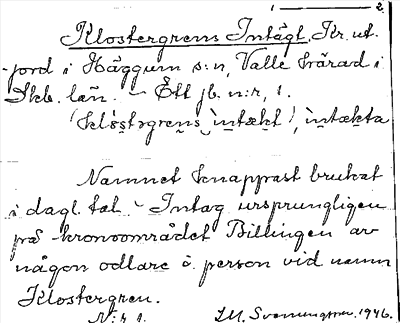 1 ——— 2
Klostergrens Intägt, Kr. ut-
jord i Häggum s:n, Valle härad i
Skb. län. – Ett jb. n:r, 1.
intækta
Namnet knappast brukat
i dagl. tal – Intag ursprungligen
på kronoområdet Billingen av
någon odlare å person vid namn
Klostergren.
N:r 1. 1946.